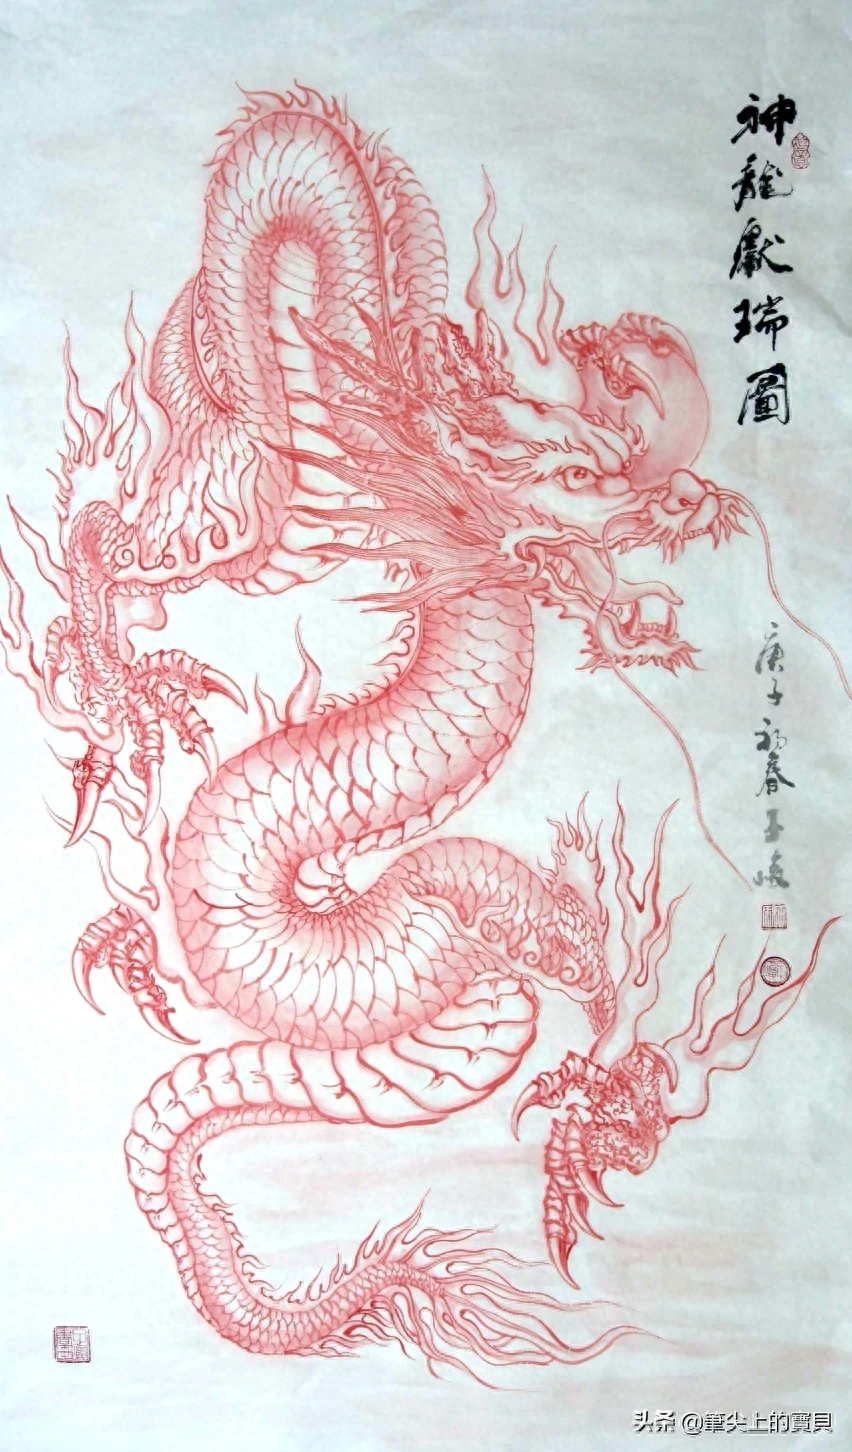 神龍獻瑞圖
庚子初春
头条 @筆尖上的寶貝